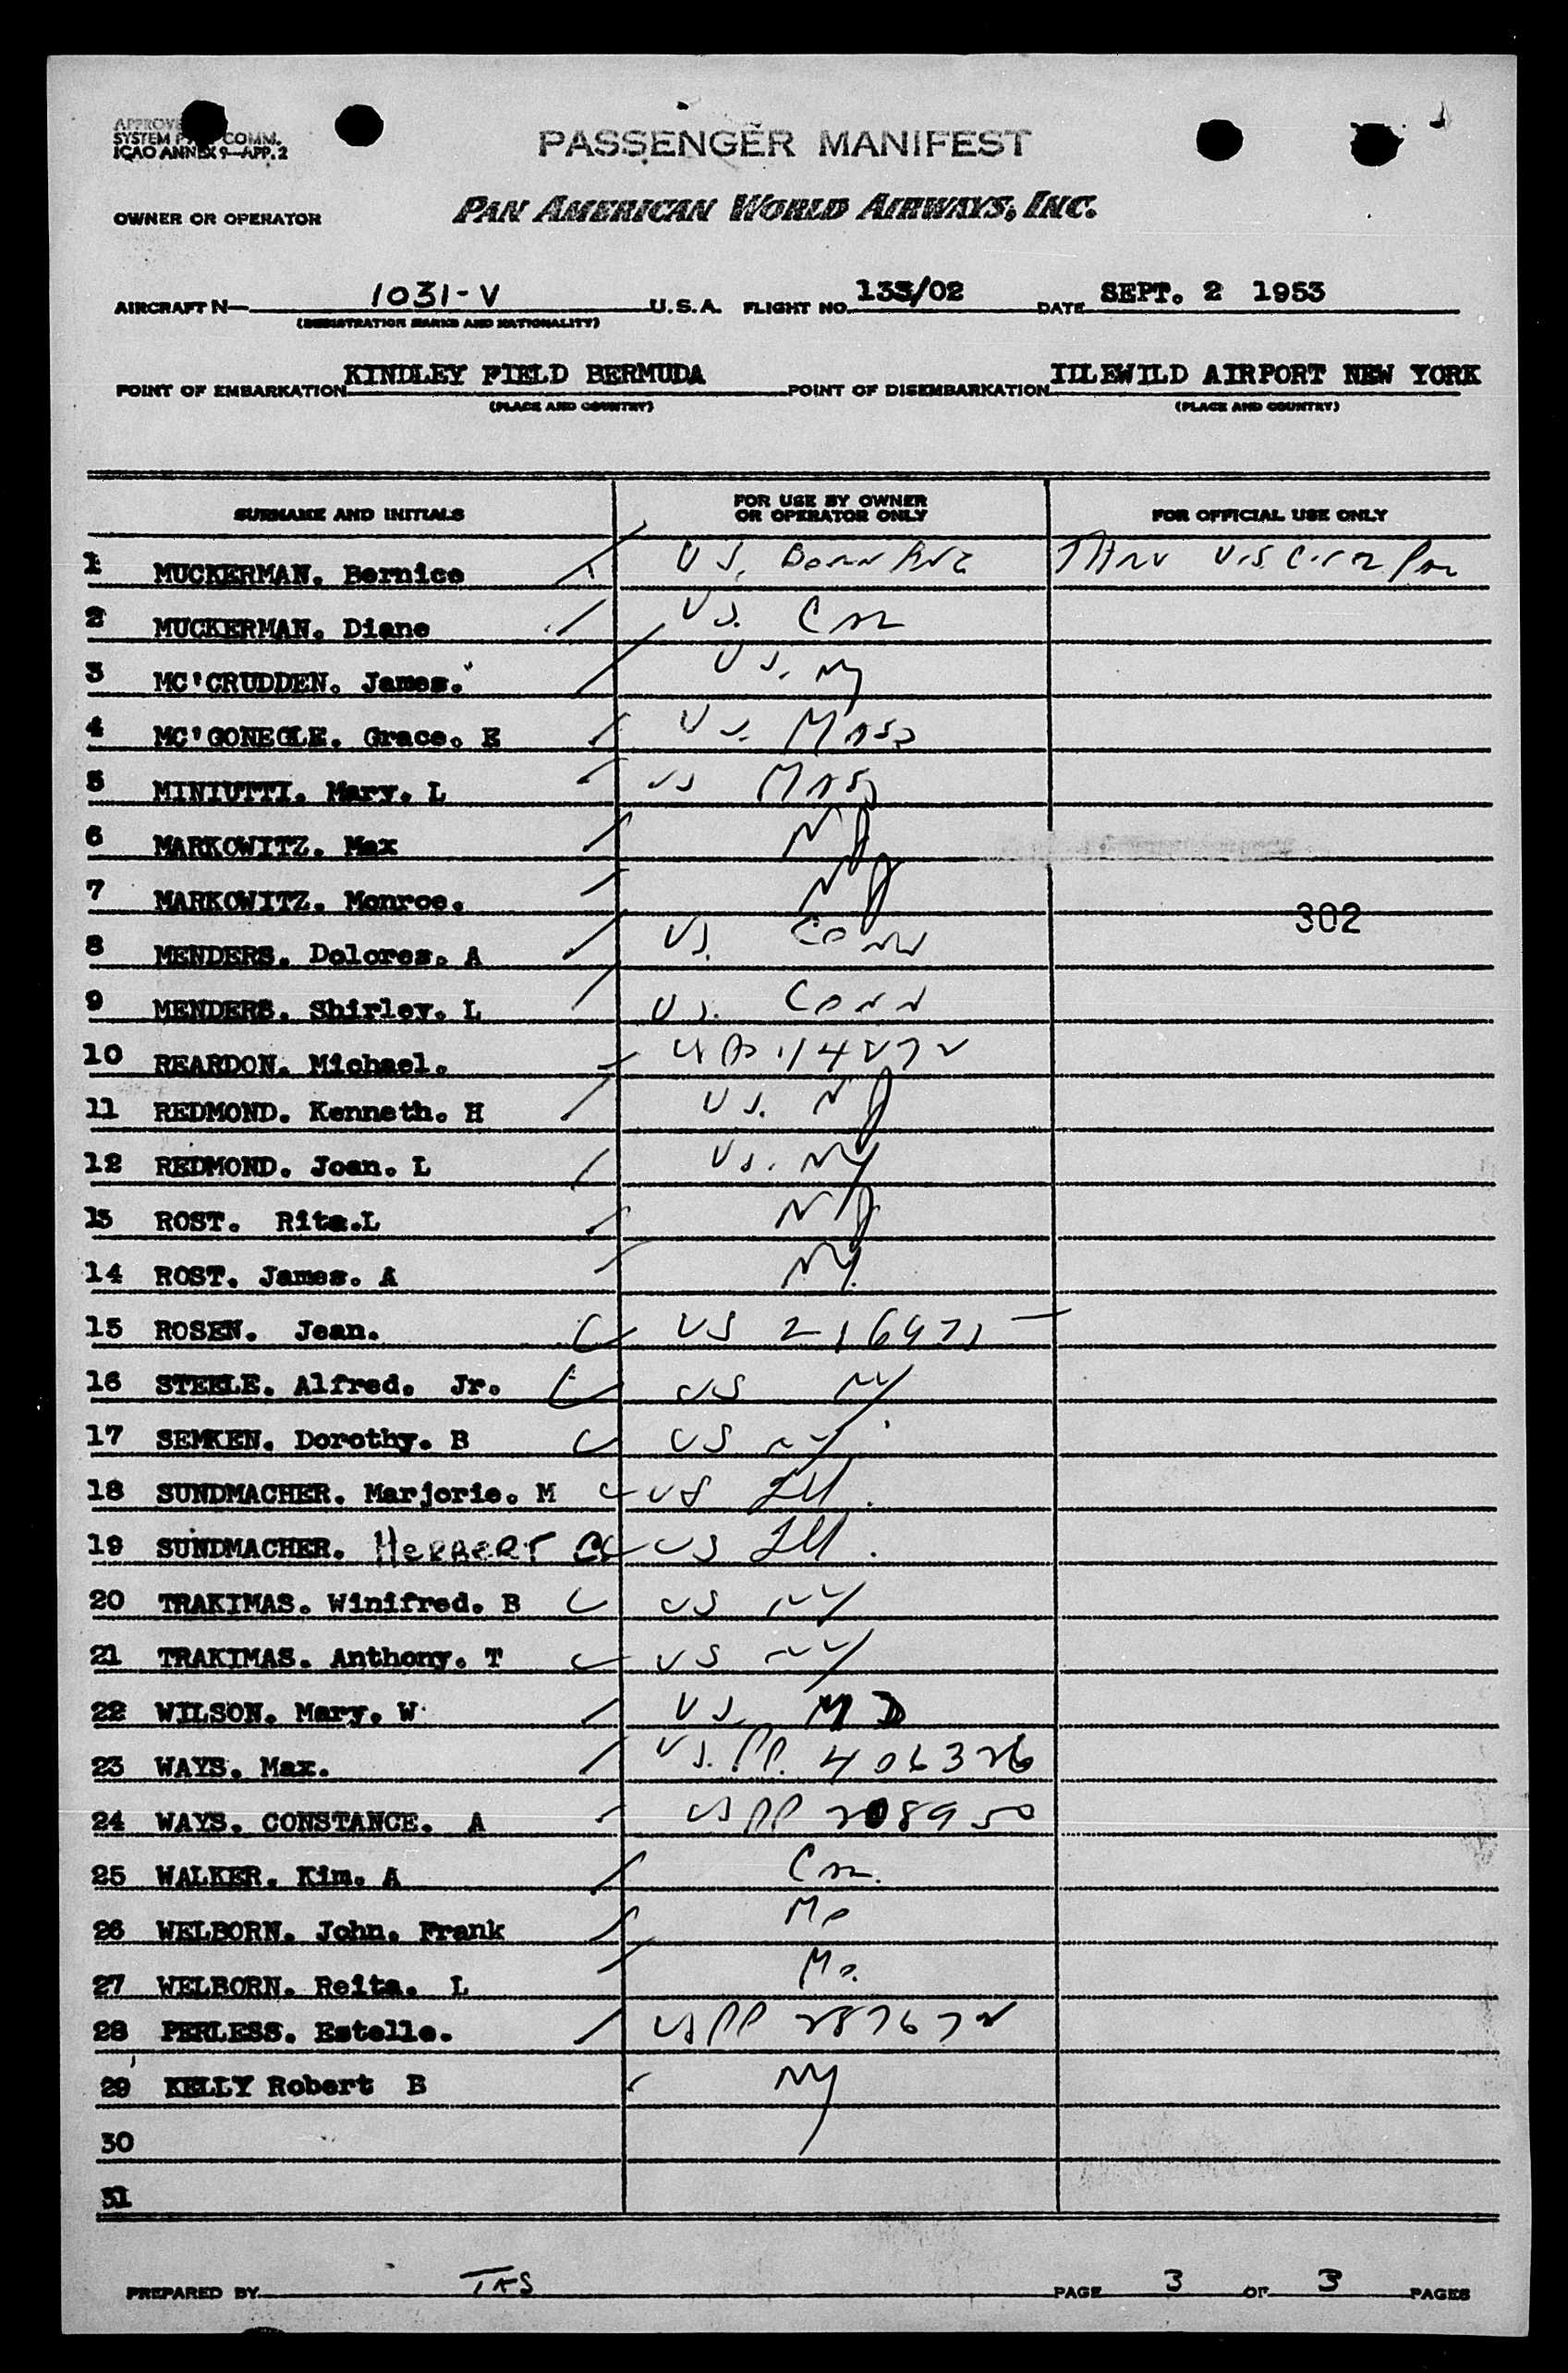 APPROVE
SYSTEM P COMM.
ICAO ANNEX 9—APP. 2
PASSENGER MANIFEST
OWNER OR OPERATOR PAN AMERICAN WORLD AIRWAYS, INC.
AIRCRAFT N— 1031-V U.S.A. FLIGHT NO. 133/02 DATE SEPT. 2 1953
(REGISTRATION MARKS AND NATIONALITY)
POINT OF EMBARKATION KINDLEY FIELD BERMUDA POINT OF DISEMBARKATION IDLEWILD AIRPORT NEW YORK
(PLACE AND COUNTRY) (PLACE AND COUNTRY)
SURNAME AND INITIALS FOR USE BY OWNER OR OPERATOR ONLY FOR OFFICIAL USE ONLY
1 MUCKERMAN. Bernice US.
2 MUCKERMAN. Diane US.
3 MC'CRUDDEN. James. US. NY
4 MC'GONEGLE. Grace. E US. Mass
5 MINIUTTI. Mary. L US Mass
6 MARKOWITZ. Max NJ
7 MARKOWITZ. Monroe. NJ
302
8 MENDERS. Dolores. A US. Conn
9 MENDERS. Shirley. L US. Conn
10 REARDON. Michael.
11 REDMOND. Kenneth. H US. NJ
12 REDMOND. Joan. L US. NY
13 ROST. Rita.L NJ
14 ROST. James. A NY.
15 ROSEN. Jean. US
16 STEELE. Alfred. Jr. US NY
17 SEMKEN. Dorothy. B US NY
18 SUNDMACHER. Marjorie. M US Ill.
19 SUNDMACHER. HERBERT C US Ill.
20 TRAKIMAS. Winifred. B US NY
21 TRAKIMAS. Anthony. T US NY
22 WILSON. Mary. W US. MD
23 WAYS. Max. US. PP. 406326
24 WAYS. CONSTANCE. A US PP 208950
25 WALKER. Kim. A
26 WELBORN. John. Frank Mo
27 WELBORN. Reita. L Mo.
28 PERLESS. Estelle. US PP 287672
29 KELLY Robert B NY
30
31
PREPARED BY TKS PAGE 3 OF 3 PAGES